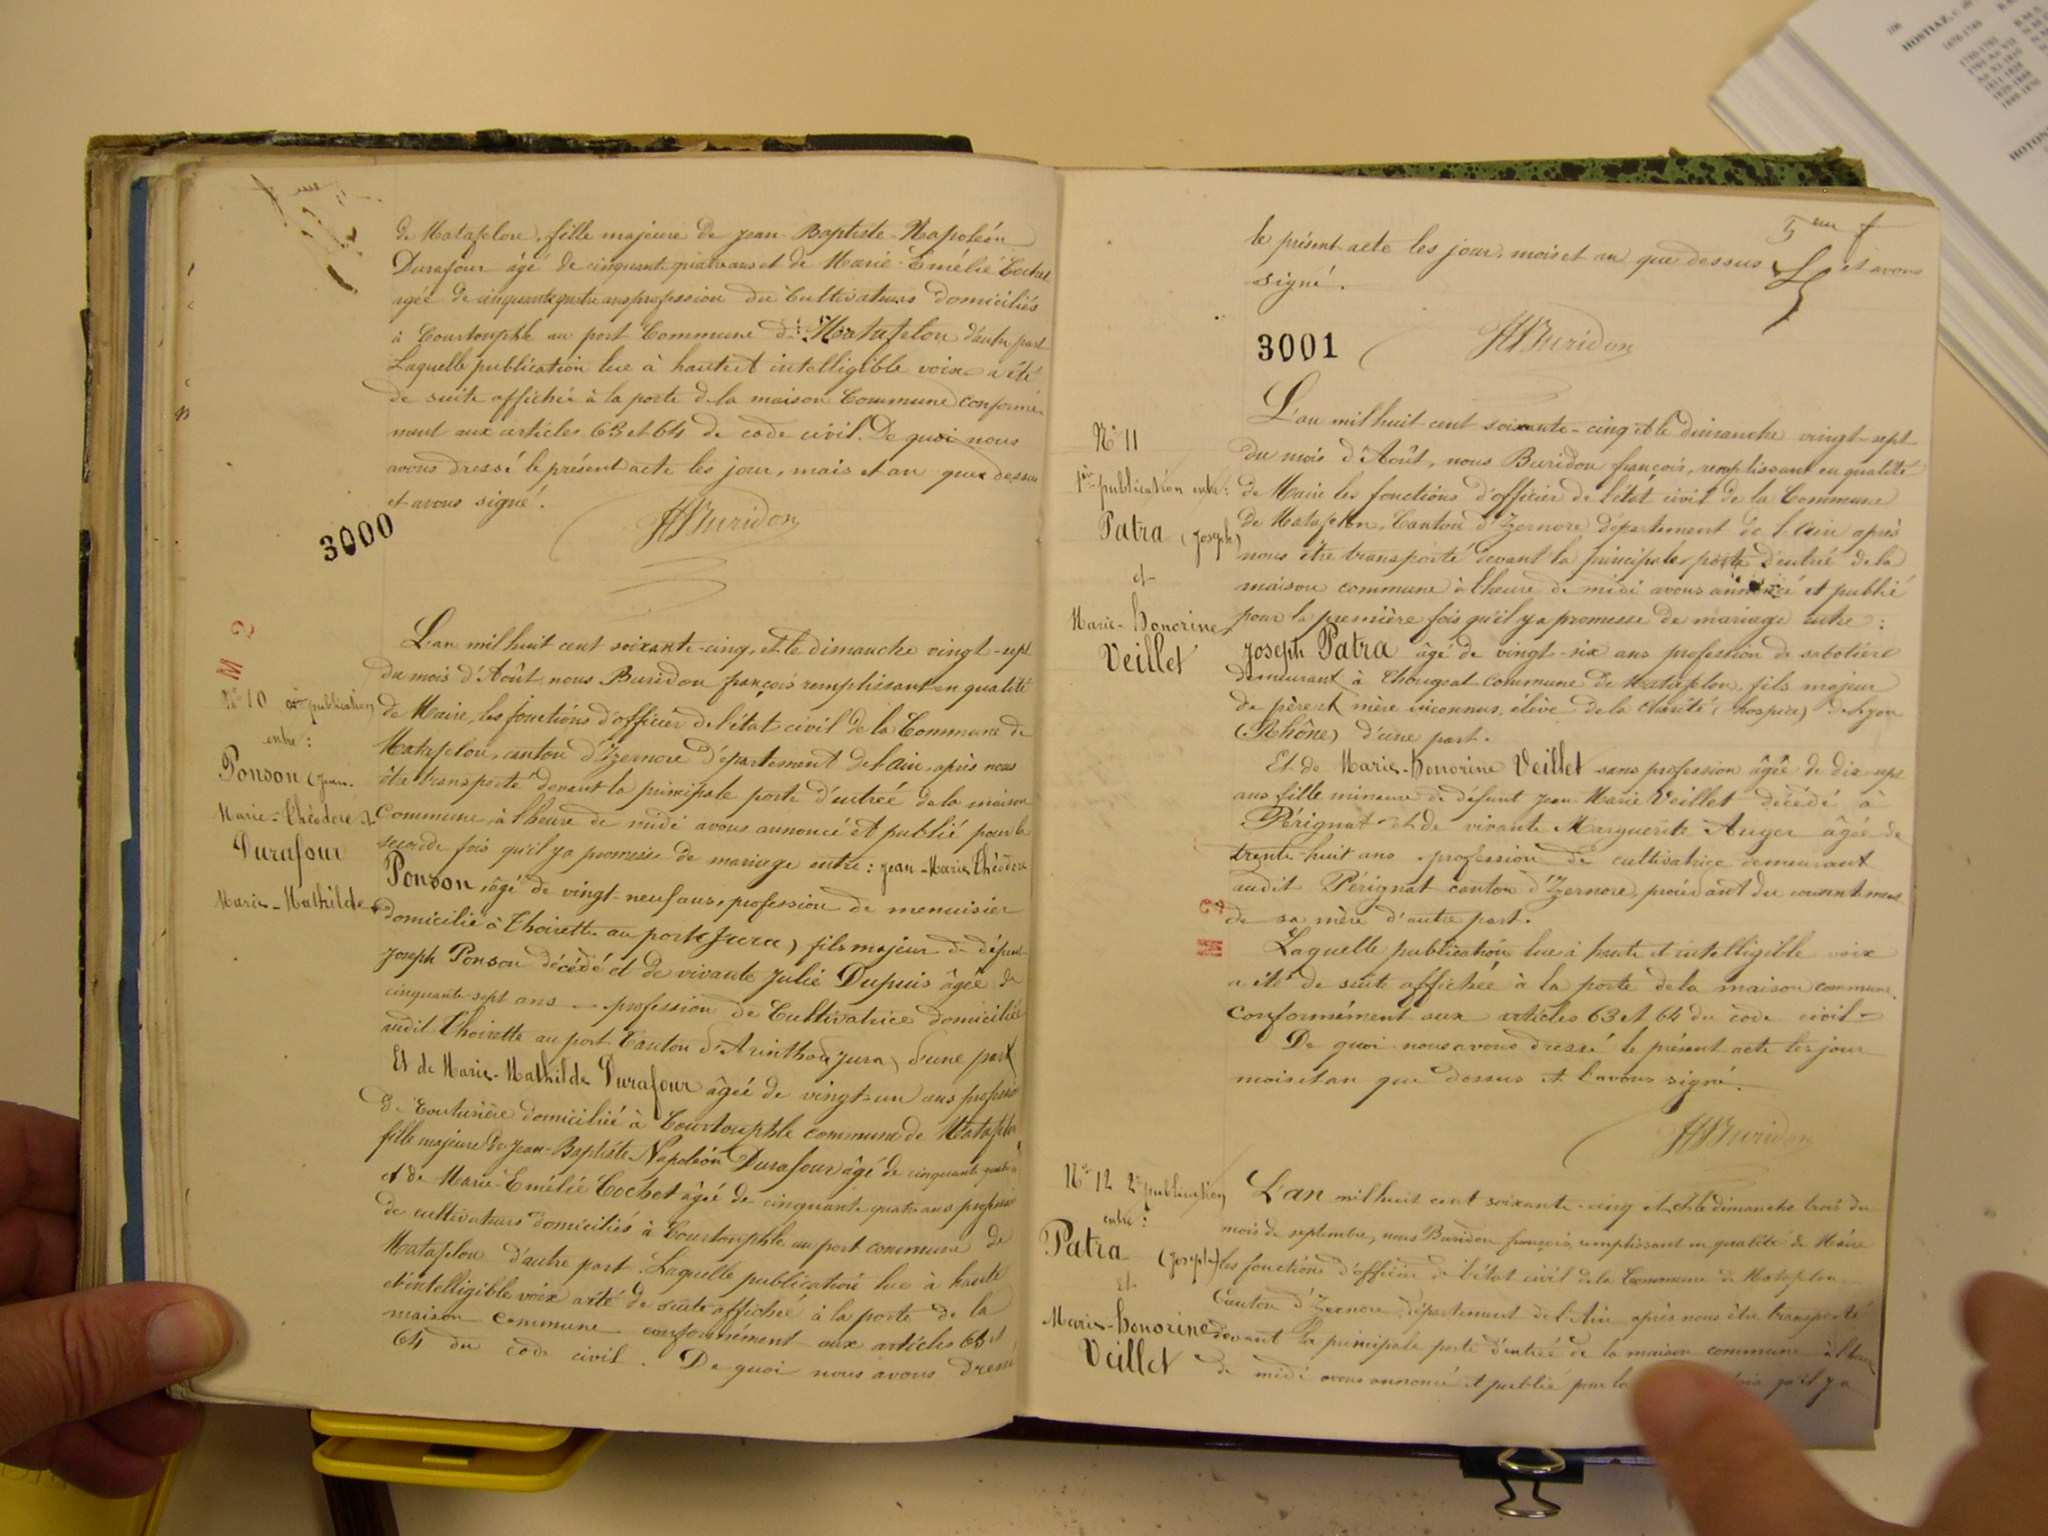 de Matafelon, fille majeure de Jean Baptiste Napoléon
Durafour âgé de cinquante quatre ans et de Marie-Emélie Cochet
agée de cinquante quatre ans profession de Cultivateurs domiciliés
à Courtouphle au port Commune de Matafelon d'autre part
Laquelle publication lue à haute et intelligible voix a été
de suite affichée à la porte de la maison Commune conformé-
ment aux articles 63 et 64 de code civil. De quoi nous
avons dressé le présent acte les jour, mois et an que dessus
et avons signé.
3000
JF Buridon
M 2
L'an mil huit cent soixante-cinq, et le dimanche vingt-sept
du mois d'Août nous Buridon françois remplissant en qualité
N° 10 2e publication
entre :
Ponson (Jean-
Marie-Théodore &
Durafour
Marie-Mathilde
de Maire, les fonctions d'officier de l'état civil de la Commune de
Matafelon, canton d'Izernore département de l'ain, après nous
être transporté devant la principale porte d'entrée de la maison
Commune, à l'heure de midi avons annoncé et publié pour la
seconde fois qu'il y a promesse de mariage entre : Jean-Marie Théodore
Ponson, âgé de vingt-neuf ans, profession de menuisier
domicilié à Thoirette au port (Jura) fils majeur de défunt
Joseph Ponson décédé et de vivante Julie Dupuis âgée de
cinquante-sept ans profession de Cultivatrice domiciliée
audit Thoirette au port Canton d'Arinthod Jura) d'une part
Et de Marie-Mathilde Durafour âgée de vingt-un ans profession
de Couturière domiciliée à Courtouphle commune de Matafelon
fille majeure de Jean-Baptiste Napoléon Durafour âgé de cinquante-quatre
et de Marie-Emélie Cochet âgée de cinquante quatre ans profession
de cultivateurs domiciliés à Courtouphle au port commune de
Matafelon d'autre part. Laquelle publication lue à haute
et intelligible voix a été de suite affichée à la porte de la
maison commune conformément aux articles 63 et
64 du code civil. De quoi nous avons dressé
5eme f
le présent acte les jour, mois et an que dessus et avons
signé.
3001
JF Buridon
N° 11
1ère publication entre :
Patra (Joseph)
et
Marie-honorine
Veillet
L'an mil huit cent soixante-cinq et le dimanche vingt-sept
du mois d'Août, nous Buridon françois, remplissant en qualité
de Maire les fonctions d'officier de l'état civil de la Commune
de Matafelon, Canton d'Izernore département de l'ain après
nous être transporté devant la principale porte d'entrée de la
maison commune à l'heure de midi avons annoncé et publié
pour la première fois qu'il y a promesse de mariage entre :
Joseph Patra âgé de vingt-six ans profession de sabotier
demeurant à Chougeat Commune de Matafelon, fils majeur
de père et mère inconnus, élève de la Charité (hospice) de Lyon
(Rhône) d'une part.
Et de Marie-honorine Veillet sans profession âgée de dix-sept
ans fille mineure de défunt Jean Marie Veillet décédé à
Pérignat et de vivante Marguerite Auger âgée de
trente-huit ans profession de cultivatrice demeurant
audit Pérignat canton d'Izernore, procédant du consentement
de sa mère d'autre part.
Laquelle publication lue à haute et intelligible voix
a été de suite affichée à la porte de la maison commune
conformément aux articles 63 et 64 du code civil.
De quoi nous avons dressé le présent acte les jour
mois et an que dessus et l'avons signé.
JF Buridon
N° 12 2e publication
entre :
Patra (Joseph)
Et
Marie-honorine
Veillet
L'an mil huit cent soixante-cinq et le dimanche trois du
mois de septembre, nous Buridon françois, remplissant en qualité de Maire
les fonctions d'officier de l'état civil de la Commune de Matafelon
Canton d'Izernore, département de l'Ain après nous être transporté
devant la principale porte d'entrée de la maison commune à l'heure
de midi avons annoncé et publié pour la fois qu'il y a
HOSTIAZ